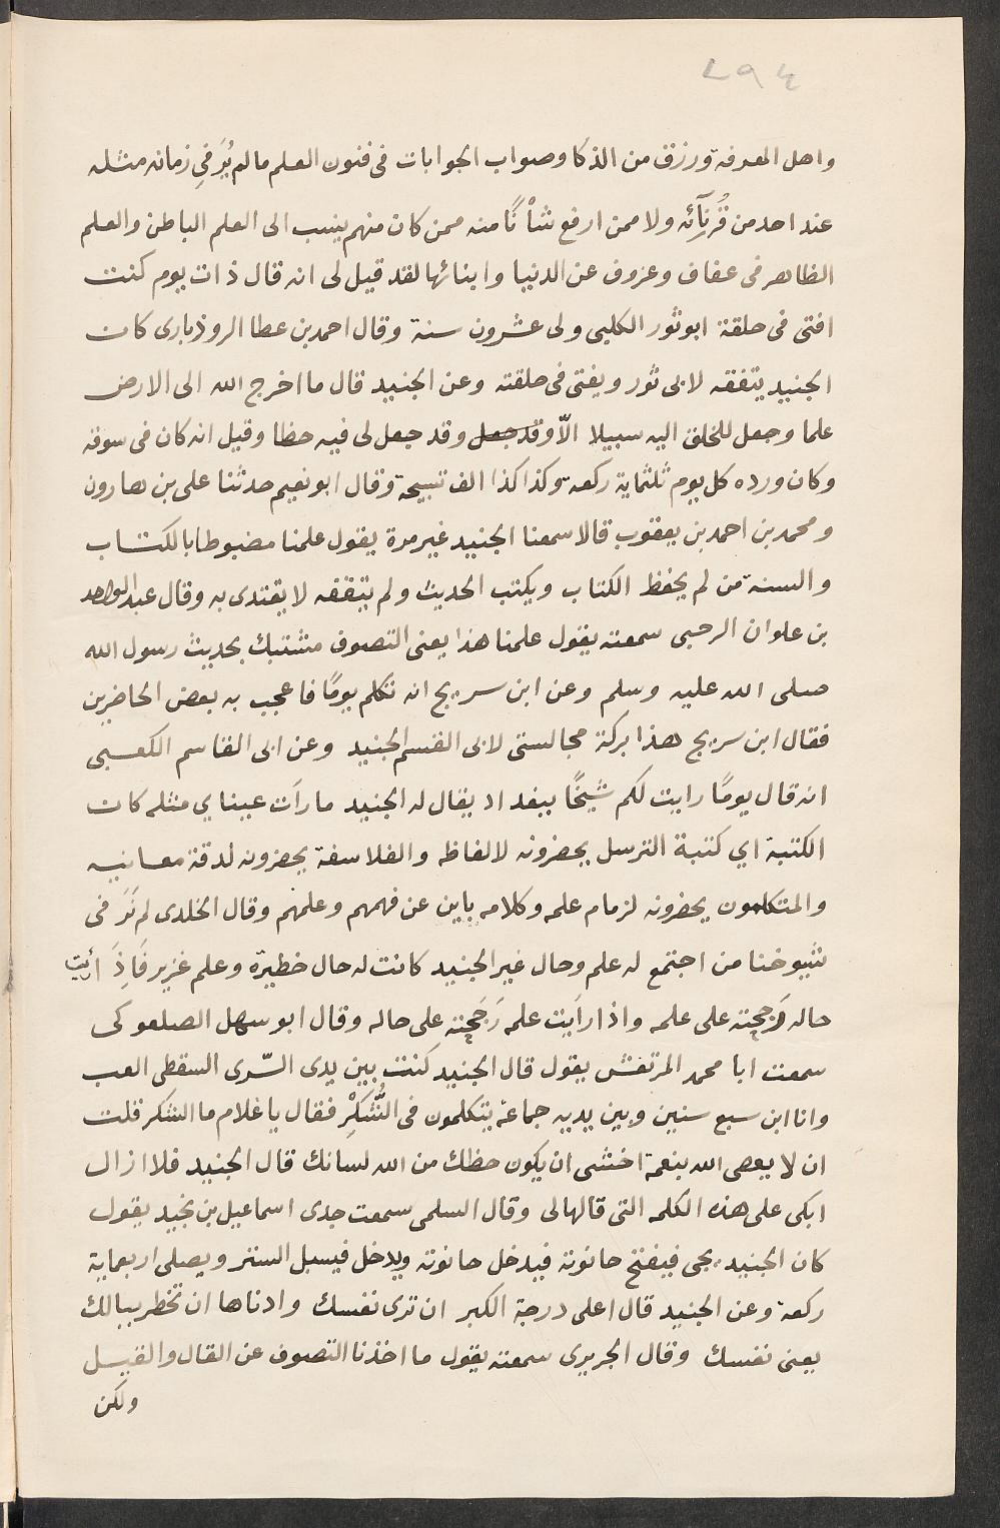 ٢٩٤
واهل المعرفة ورزق من الذكا وصواب الجوابات فى فنون العلم مالم يُرَ فىِ زمانه مثله
عند احد من قُرَنَآئِه ولا ممن ارفع شأْنًا منه ممن كان منهم ينسب الى العلم الباطن والعلم
الظاهر فى عفاف وعزوف عن الدنيا وابنائها لقد قيل لى انه قال ذات يوم كنت
افتى فى حلقة ابو ثور الكلبى ولى عشرون سنة وقال احمد بن عطا الروذبارى كان
الجنيد يتفقه لابى ثور ويفتى فى حلقته وعن الجنيد قال ما اخرج الله الى الارض
علما وجعل للخلق اليه سبيلا الّا وقد جعل وقد جعل لى فيه حظا وقيل انه كان فى سوقه
وكان ورده كل يوم ثلثماية ركعة وكذا كذا الف تسبيحة وقال ابو نعيم حدثنا على بن هارون
ومحمد بن احمد بن يعقوب قالا سمعنا الجنيد غير مرة يقول علمنا مضبوطا بالكتاب
والسنة من لم يحفظ الكتاب ويكتب الحديث ولم يتفقه لا يقتدى به وقال عبد الواحد
بن علوان الرحبى سمعته يقول علمنا هذا يعنى التصوف مشتبك بحديث رسول الله
صلى الله عليه وسلم وعن ابن سريج انه تكلم يومًا فاعجب به بعض الحاضرين
فقال ابن سريج هذا بركة مجالستى لابى القسم الجنيد وعن ابى القاسم الكعبى
انه قال يومًا رايت لكم شيخًا ببغداد يقال له الجنيد ما رأت عيناي مثله كان
الكتبة اي كتبة الترسل يحضرونه لالفاظه والفلاسفة يحضرونه لدقة معانيه
والمتكلمون يحضرونه لزمام علمه وكلامه باين عن فهمهم وعلمهم وقال الخلدى لم نَرَ فى
شيوخنا من اجتمع له علم وحال غير الجنيد كانت له حال خطيرة وعلم غزير فَاِذَ ارأيت
حاله رَجحته على علمه واذا رأيت علمه رَجَحته على حاله وقال ابو سهل الصلعوكى
سمعت ابا محمد المرتعش يقول قال الجنيد كنت بين يدى السّرى السقطى العب
وانا ابن سبع سنين وبين يديه جماعة يتكلمون فى الشُّكْرِ فقال يا غلام ما الشكر قلت
ان لا يعصى الله بنعمة اخشى ان يكون حظك من الله لسانك قال الجنيد فلا ازال
ابكى على هذه الكلمه التى قالها لى وقال السلمى سمعت جدى اسماعيل بن نجيد يقول
كان الجنيد يجى فيفتح حانوته فيدخل حانوته ويدخل فيسبل الستر ويصلى اربعماية
ركعة وعن الجنيد قال اعلى درجة الكبر ان ترى نفسك وادناها ان تخطر ببالك
يعنى نفسك وقال الجريرى سمعته يقول ما اخذنا التصوف عن القال والقيل
ولكن